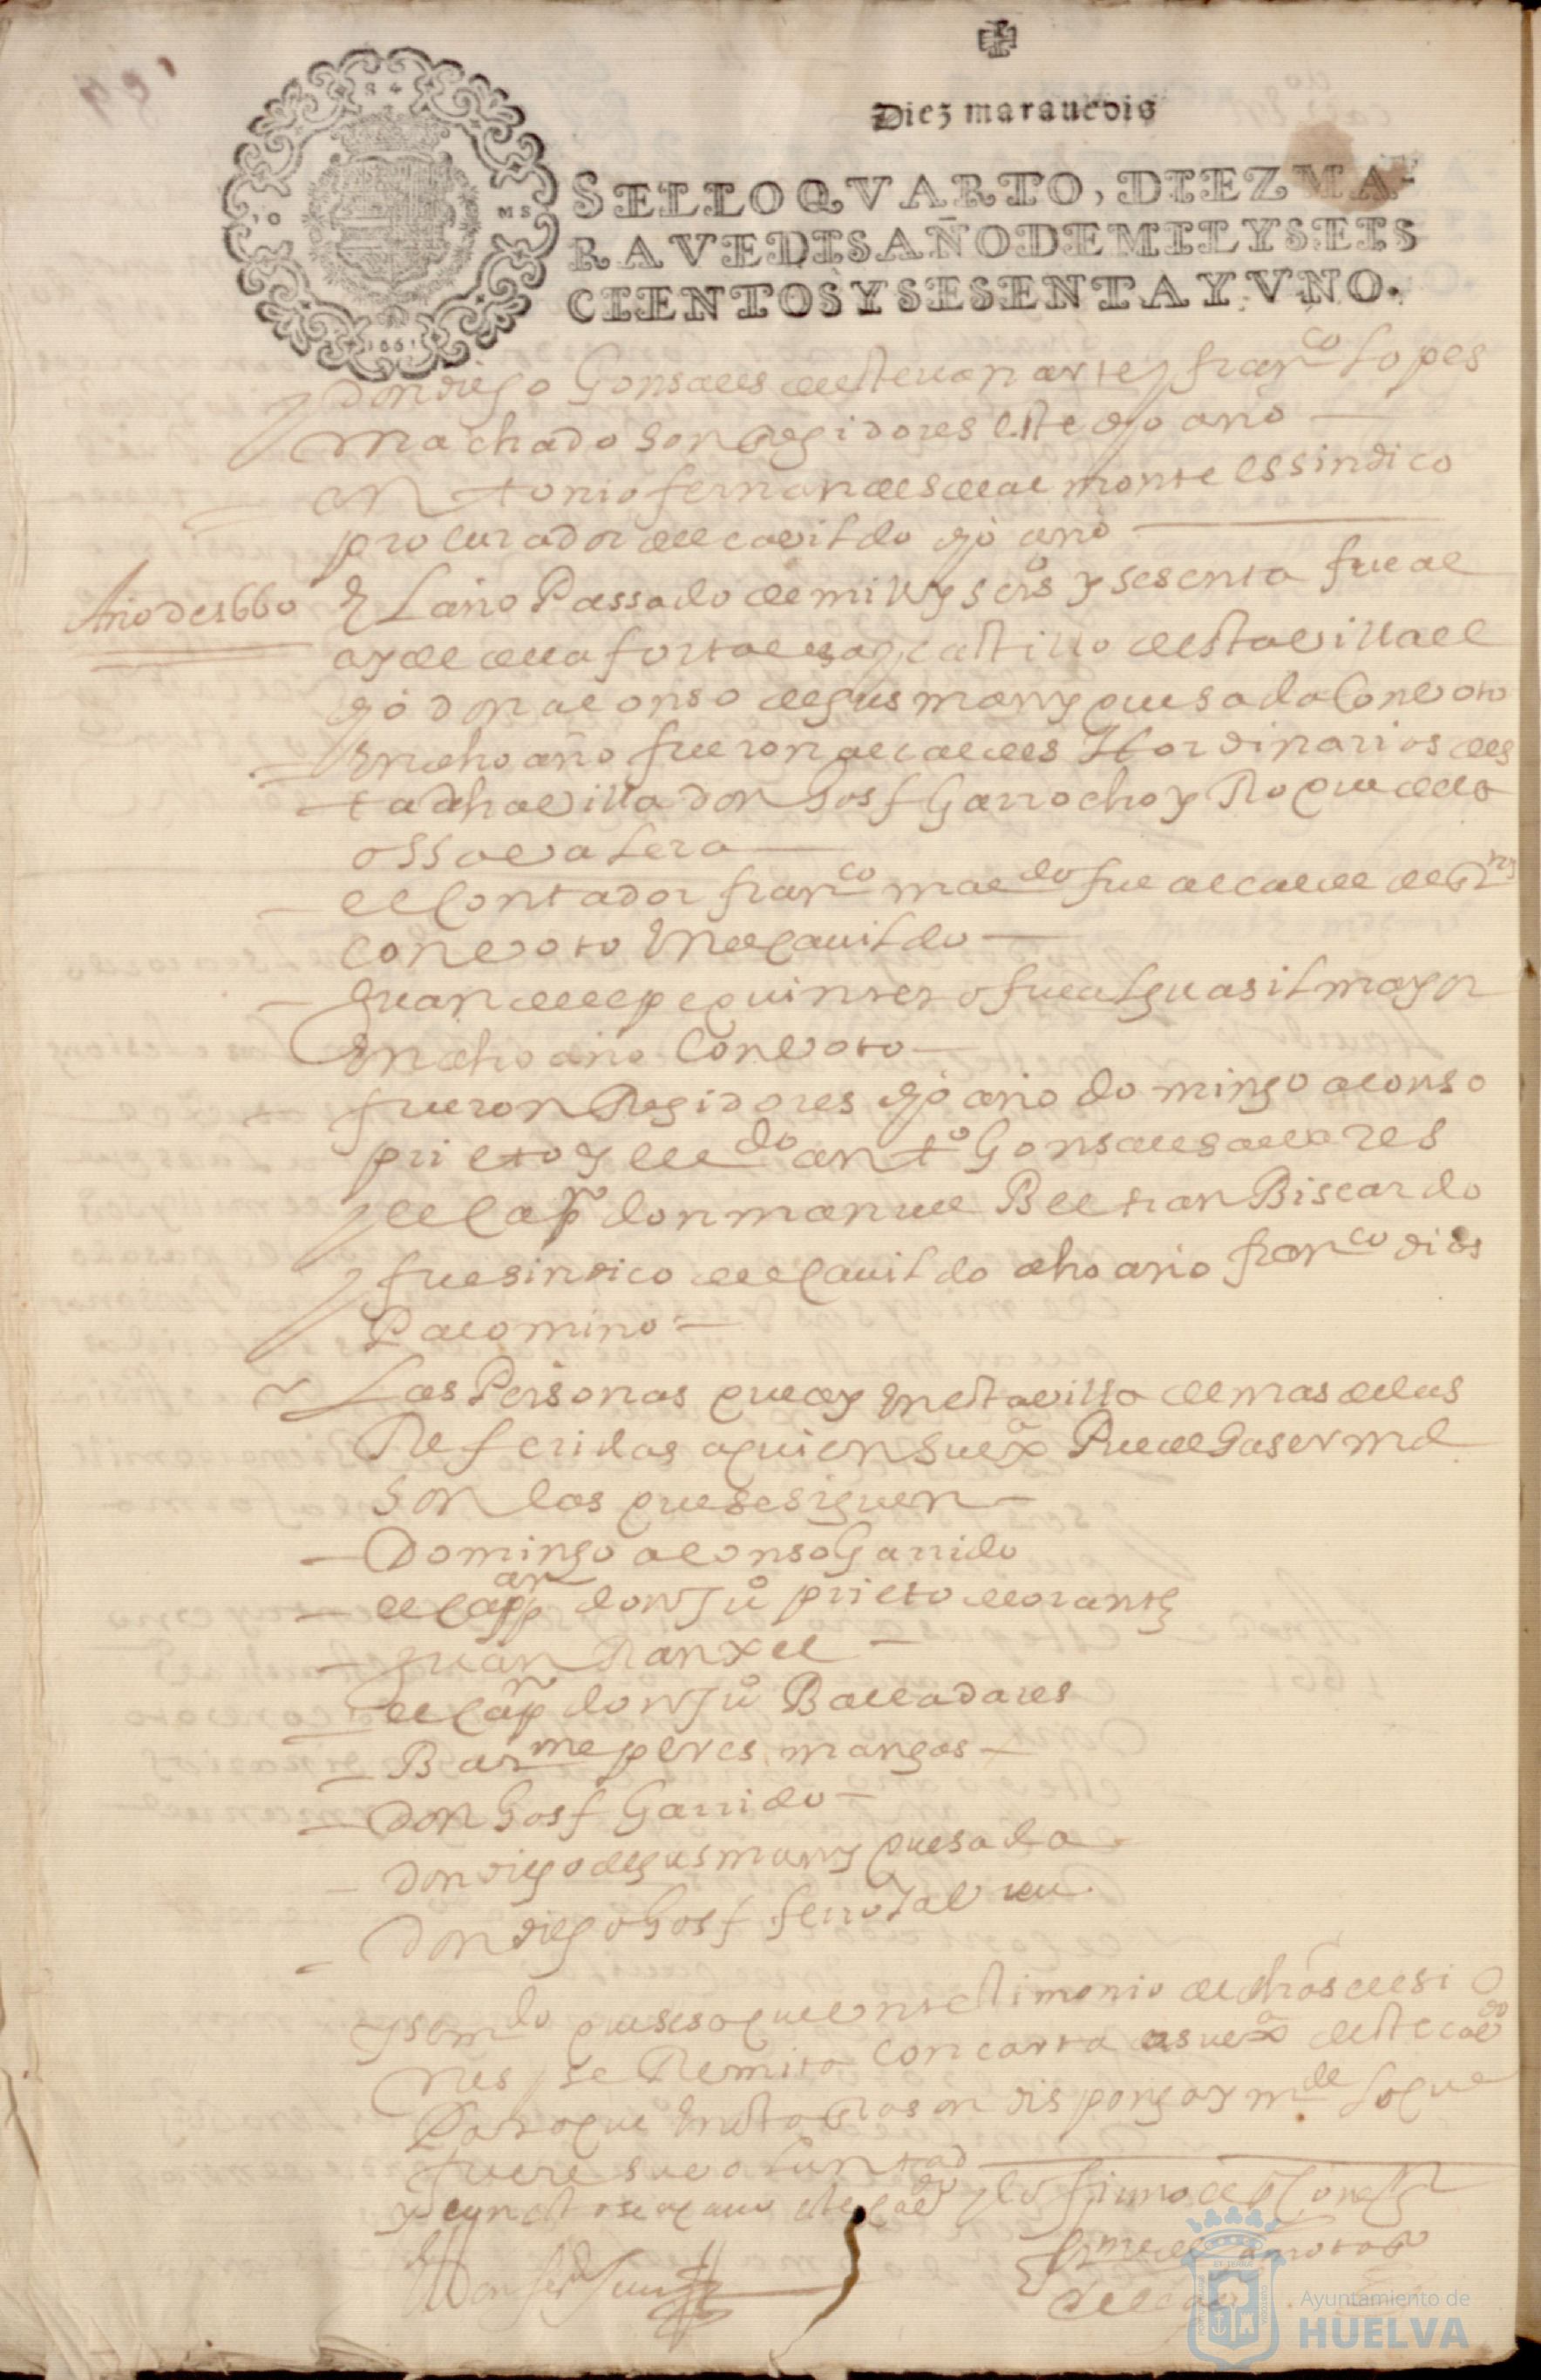 Diez marauedis
SELLO QVARTO, DIEZ MA-
RAVEDIS AÑO DE MIL Y SEIS
CIENTOS Y SESENTA Y VNO.
1661
y don diego Gonsales de steuan arte y franco Lopes
machado son Regidores este dho año
Antonio fernandes del monte es sindico
procurador del cauildo dho año
Año de 1660
El año Passado de mill y seisos y sesenta fue al
cayde de la fortalesa y castillo desta villa el
dho don alonso de gusman y quesada Con voto
En dho año fueron alcaldes Hordinarios des
ta dha villa don Josf Garrocho y Roque de la
ossa valera
el Contador franco maldo fue alcalde de
con voto En el cauildo
Juan de pequintero fue alguasil mayor
En dho año Con voto
fueron Regidores dho año domingo alonso
prieto y el ldo anto Gonsales
y el Capn don manuel Beltran Biscardo
y fue sindico del Cauildo dho año franco dias
Palomino
Las Personas que ay En esta villa demas de las
Referidas a quien su exa Puede haser md
son las que se siguen
Domingo alonso Garrido
el Capan don Juo prieto llorante
Juan Ranxel
el Capn don Juo Balladares
Barme peres mangas
Don Josf Garrido
Don diego de gusman y quesada
Don diego Josf
y se mdo que se saque un testimonio de dhas elesio
nes y se Remita con carta a su exa deste cado
Para que En esta Rason disponga y mde lo que
fuere su voluntad
y con esto se acauo este cado y lo firmo
Ayuntamiento de
HUELVA